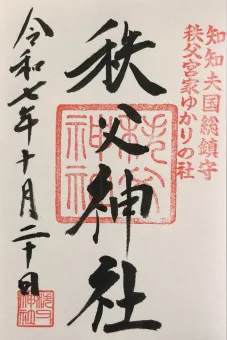 知知夫国総鎮守
秩父宮家ゆかりの社
秩父神社
秩父神社
令和七年十月二十日
秩父神社